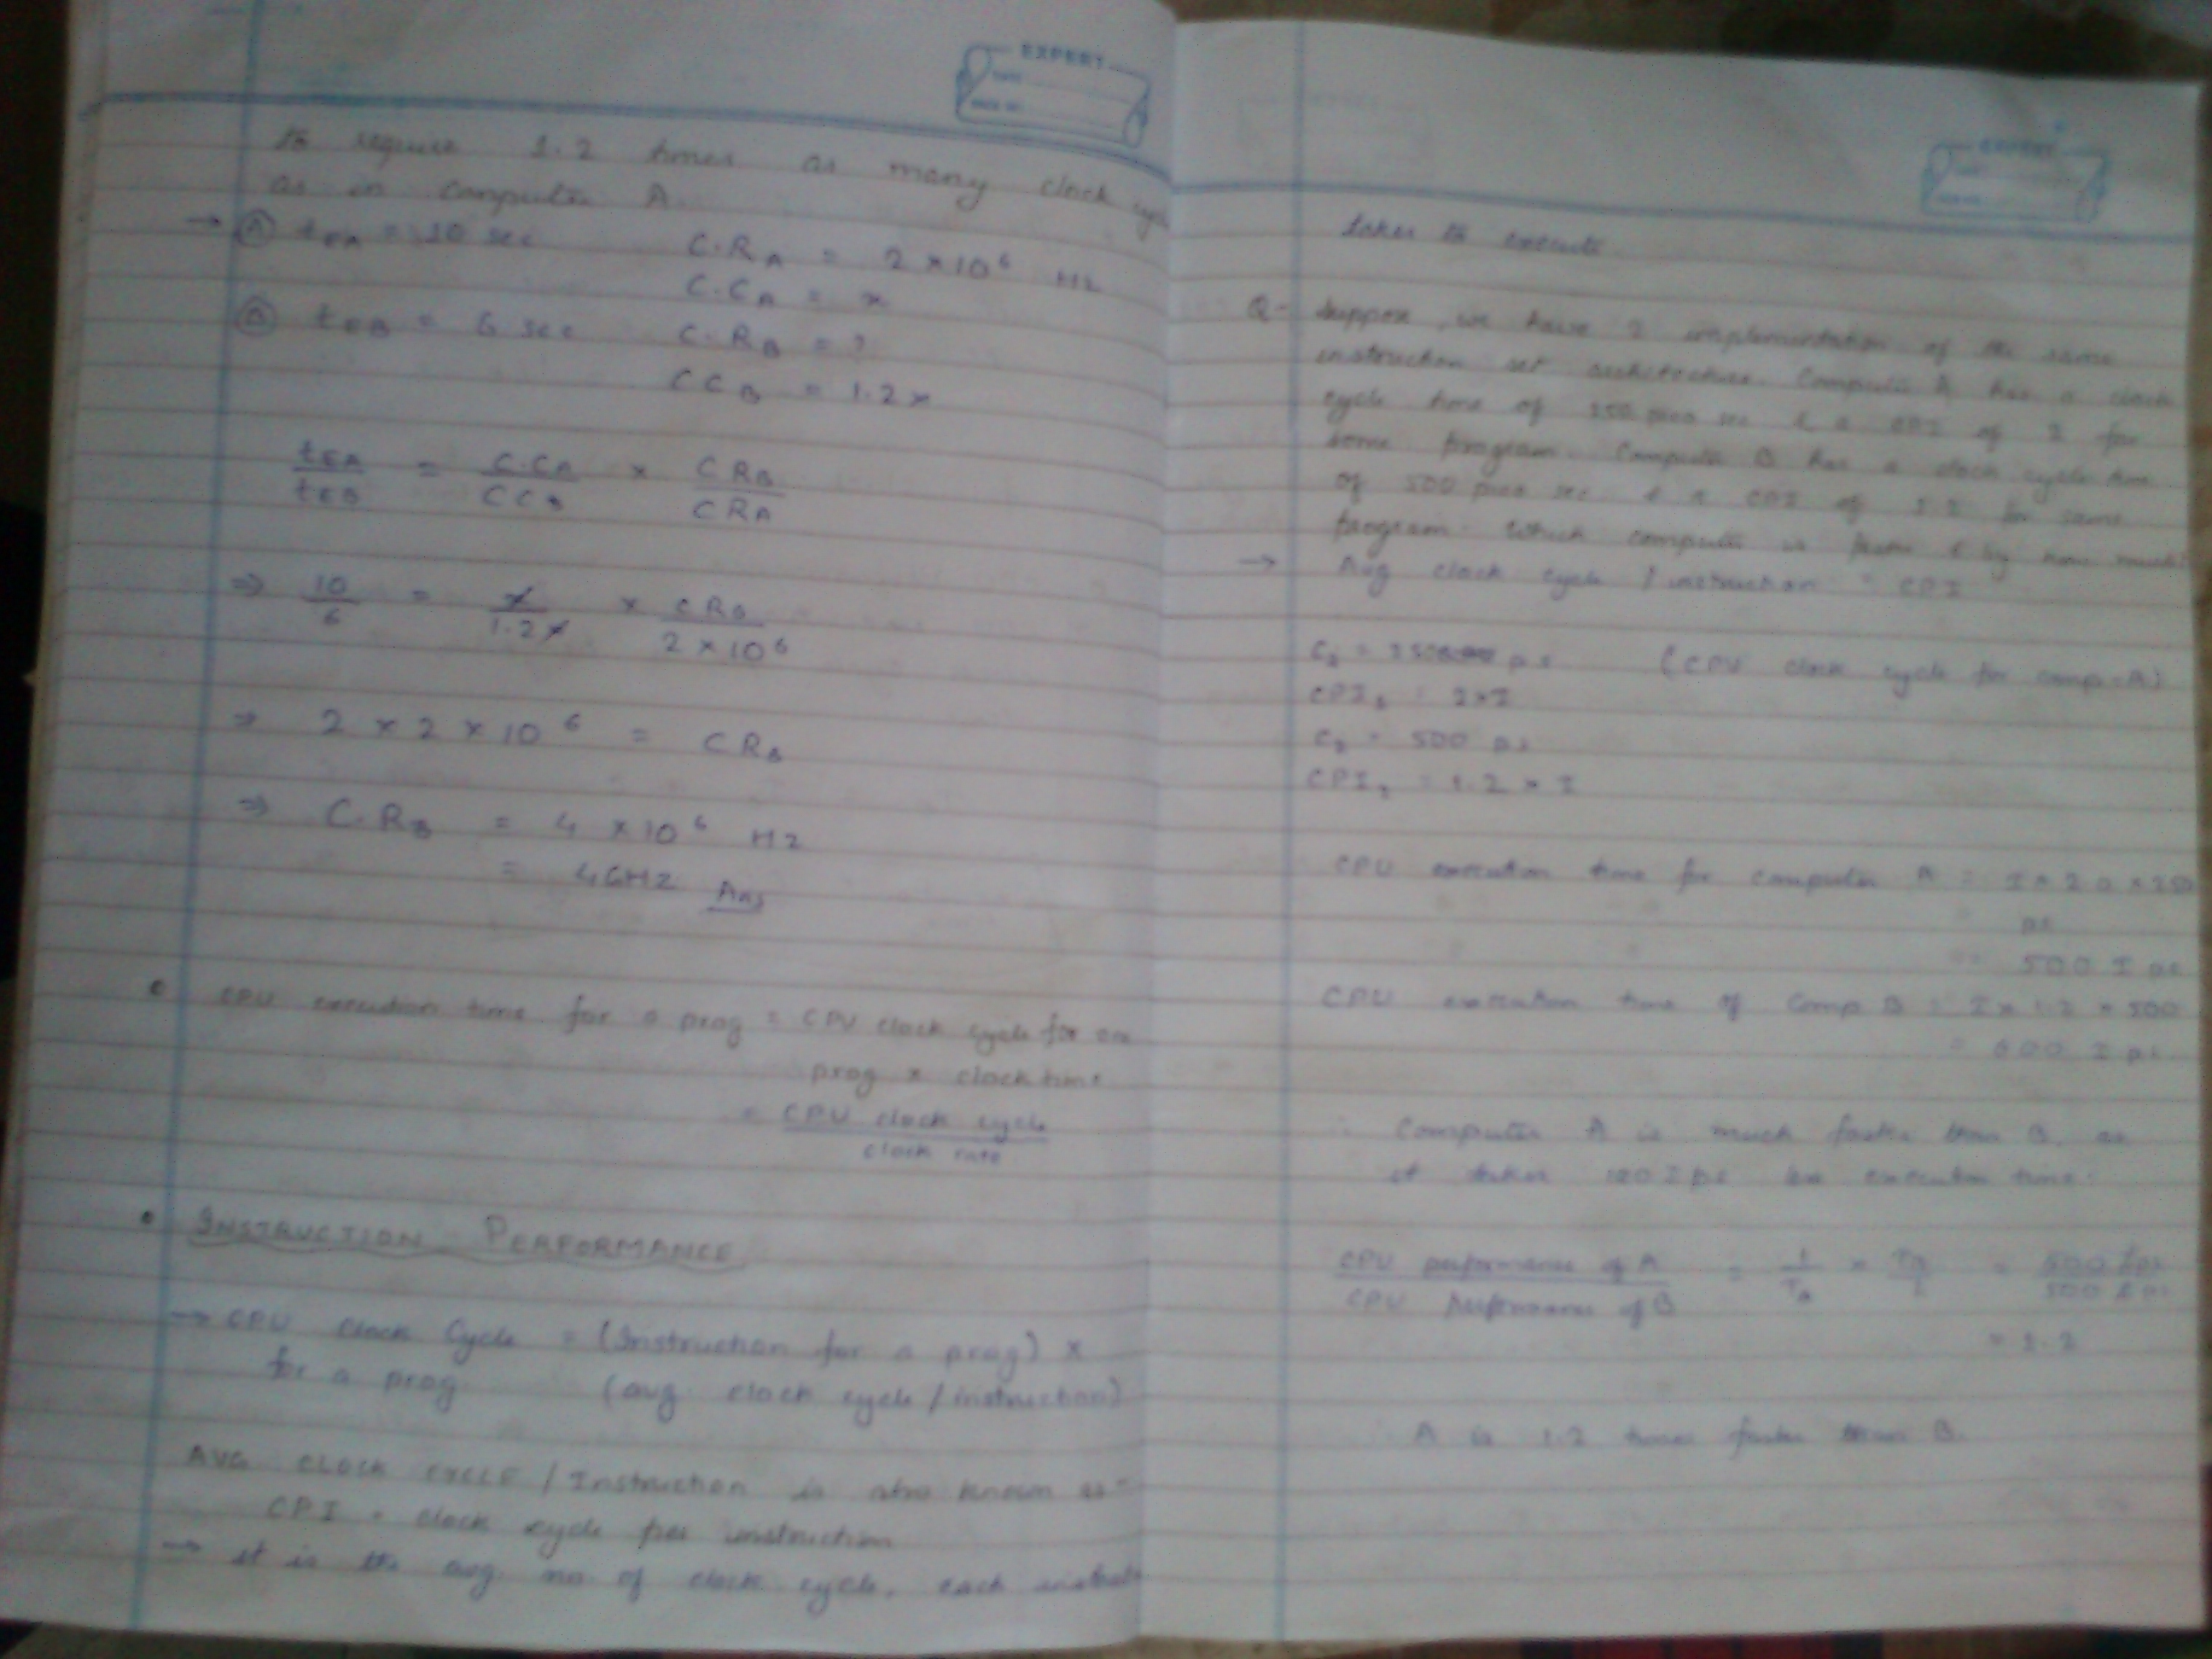 EXPERT
to require 1.2 times as many clock cycle
as in Computer A.
→ (A) tEA = 10 sec C.RA = 2 × 10^6 Hz
C.CA = x
(B) tEB = 6 sec C.RB = ?
CCB = 1.2x
tEA / tEB = C.CA / CCB × CRB / CRA
⇒ 10 / 6 = x / 1.2x × CRB / 2 × 10^6
⇒ 2 × 2 × 10^6 = CRB
⇒ C.RB = 4 × 10^6 Hz
= 4GHz Ans
• CPU execution time for a prog = CPU clock cycle for
prog × clock time
= CPU clock cycle / clock rate
• INSTRUCTION PERFORMANCE
→ CPU Clock Cycle = (Instruction for a prog) ×
for a prog (avg clock cycle / instruction)
AVG CLOCK CYCLE / Instruction is also known as -
CPI - clock cycle per instruction
→ it is the avg no. of clock cycle, each
EXPERT
takes to execute
Q- Suppose, we have 2 implementation of the same
instruction set architecture. Computer A has a clock
cycle time of 250 pico sec & a CPI of 2 for
some program. Computer B has a clock cycle time
of 500 pico sec & a CPI of 1.2 for same
program. Which computer is faster & by how much?
→ Avg clock cycle / instruction = CPI
= 250 ps (CPU clock cycle for comp-A)
CPI1 = 2×I
C2 = 500 ps
CPI2 = 1.2 × I
CPU execution time for computer A = I × 2.0 × 250
ps
= 500 I ps
CPU execution time of Comp B = I × 1.2 × 500
= 600 I ps
∴ Computer A is much faster than B, as
it takes 100 I ps less execution time.
CPU performance of A / CPU performance of B = 1 / TA × TB / 1 = 600 I ps / 500 I ps
= 1.2
∴ A is 1.2 times faster than B.